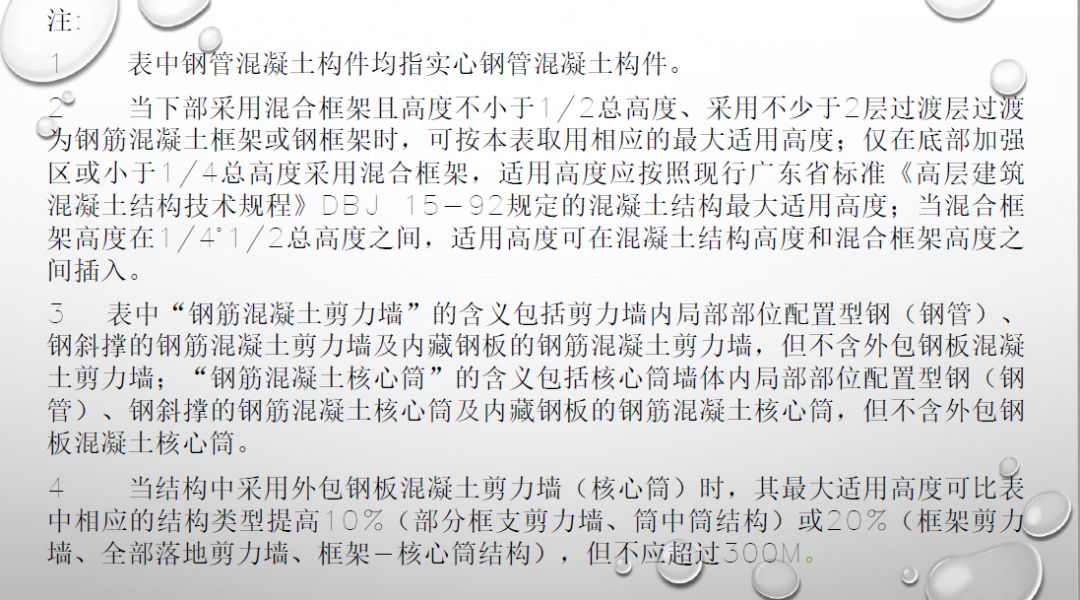 注:
1 表中钢管混凝土构件均指实心钢管混凝土构件。
2 当下部采用混合框架且高度不小于1/2总高度、采用不少于2层过渡层过渡
为钢筋混凝土框架或钢框架时，可按本表取用相应的最大适用高度；仅在底部加强
区或小于1/4总高度采用混合框架，适用高度应按照现行广东省标准《高层建筑
混凝土结构技术规程》DBJ 15-92规定的混凝土结构最大适用高度；当混合框
架高度在1/4~1/2总高度之间，适用高度可在混凝土结构高度和混合框架高度之
间插入。
3 表中“钢筋混凝土剪力墙”的含义包括剪力墙内局部部位配置型钢（钢管）、
钢斜撑的钢筋混凝土剪力墙及内藏钢板的钢筋混凝土剪力墙，但不含外包钢板混凝
土剪力墙；“钢筋混凝土核心筒”的含义包括核心筒墙体内局部部位配置型钢（钢
管）、钢斜撑的钢筋混凝土核心筒及内藏钢板的钢筋混凝土核心筒，但不含外包钢
板混凝土核心筒。
4 当结构中采用外包钢板混凝土剪力墙（核心筒）时，其最大适用高度可比表
中相应的结构类型提高10%（部分框支剪力墙、筒中筒结构）或20%（框架剪力
墙、全部落地剪力墙、框架-核心筒结构），但不应超过300M。